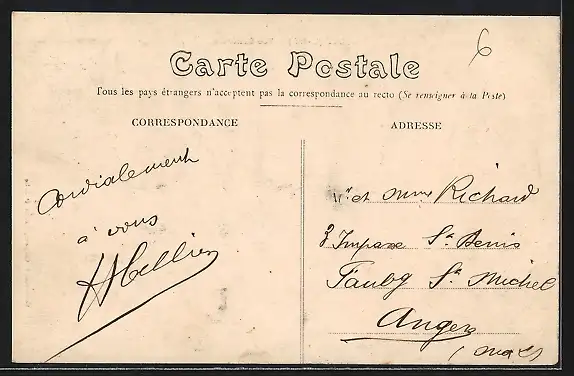 6
Carte Postale
Tous les pays étrangers n'acceptent pas la correspondance au recto (Se renseigner à la Poste)
CORRESPONDANCE
ADRESSE
Cordialement
à vous
Mr et Mme Richard
3 Impasse St Denis
Faubg St Michel
Angers